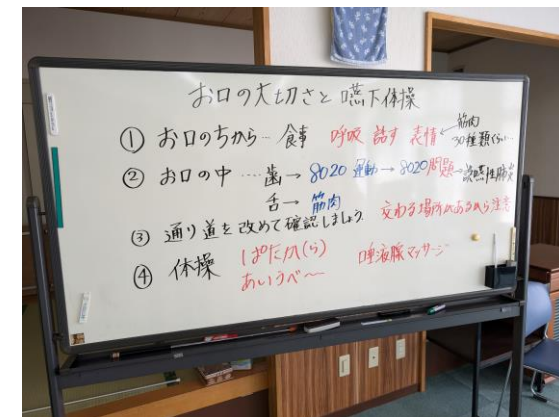 お口の大切さと嚥下体操
① お口のちから… 食事 呼吸 話す 表情 ← 筋肉 30種類くらい…
② お口の中 … 歯 → 8020 運動 → 8020問題 → 誤嚥性肺炎
舌 → 筋肉
③ 通り道を改めて確認しましょう 交わる場所があるから注意
④ 体操 ぱたか(ら) 唾液腺マッサージ
あいうべ〜